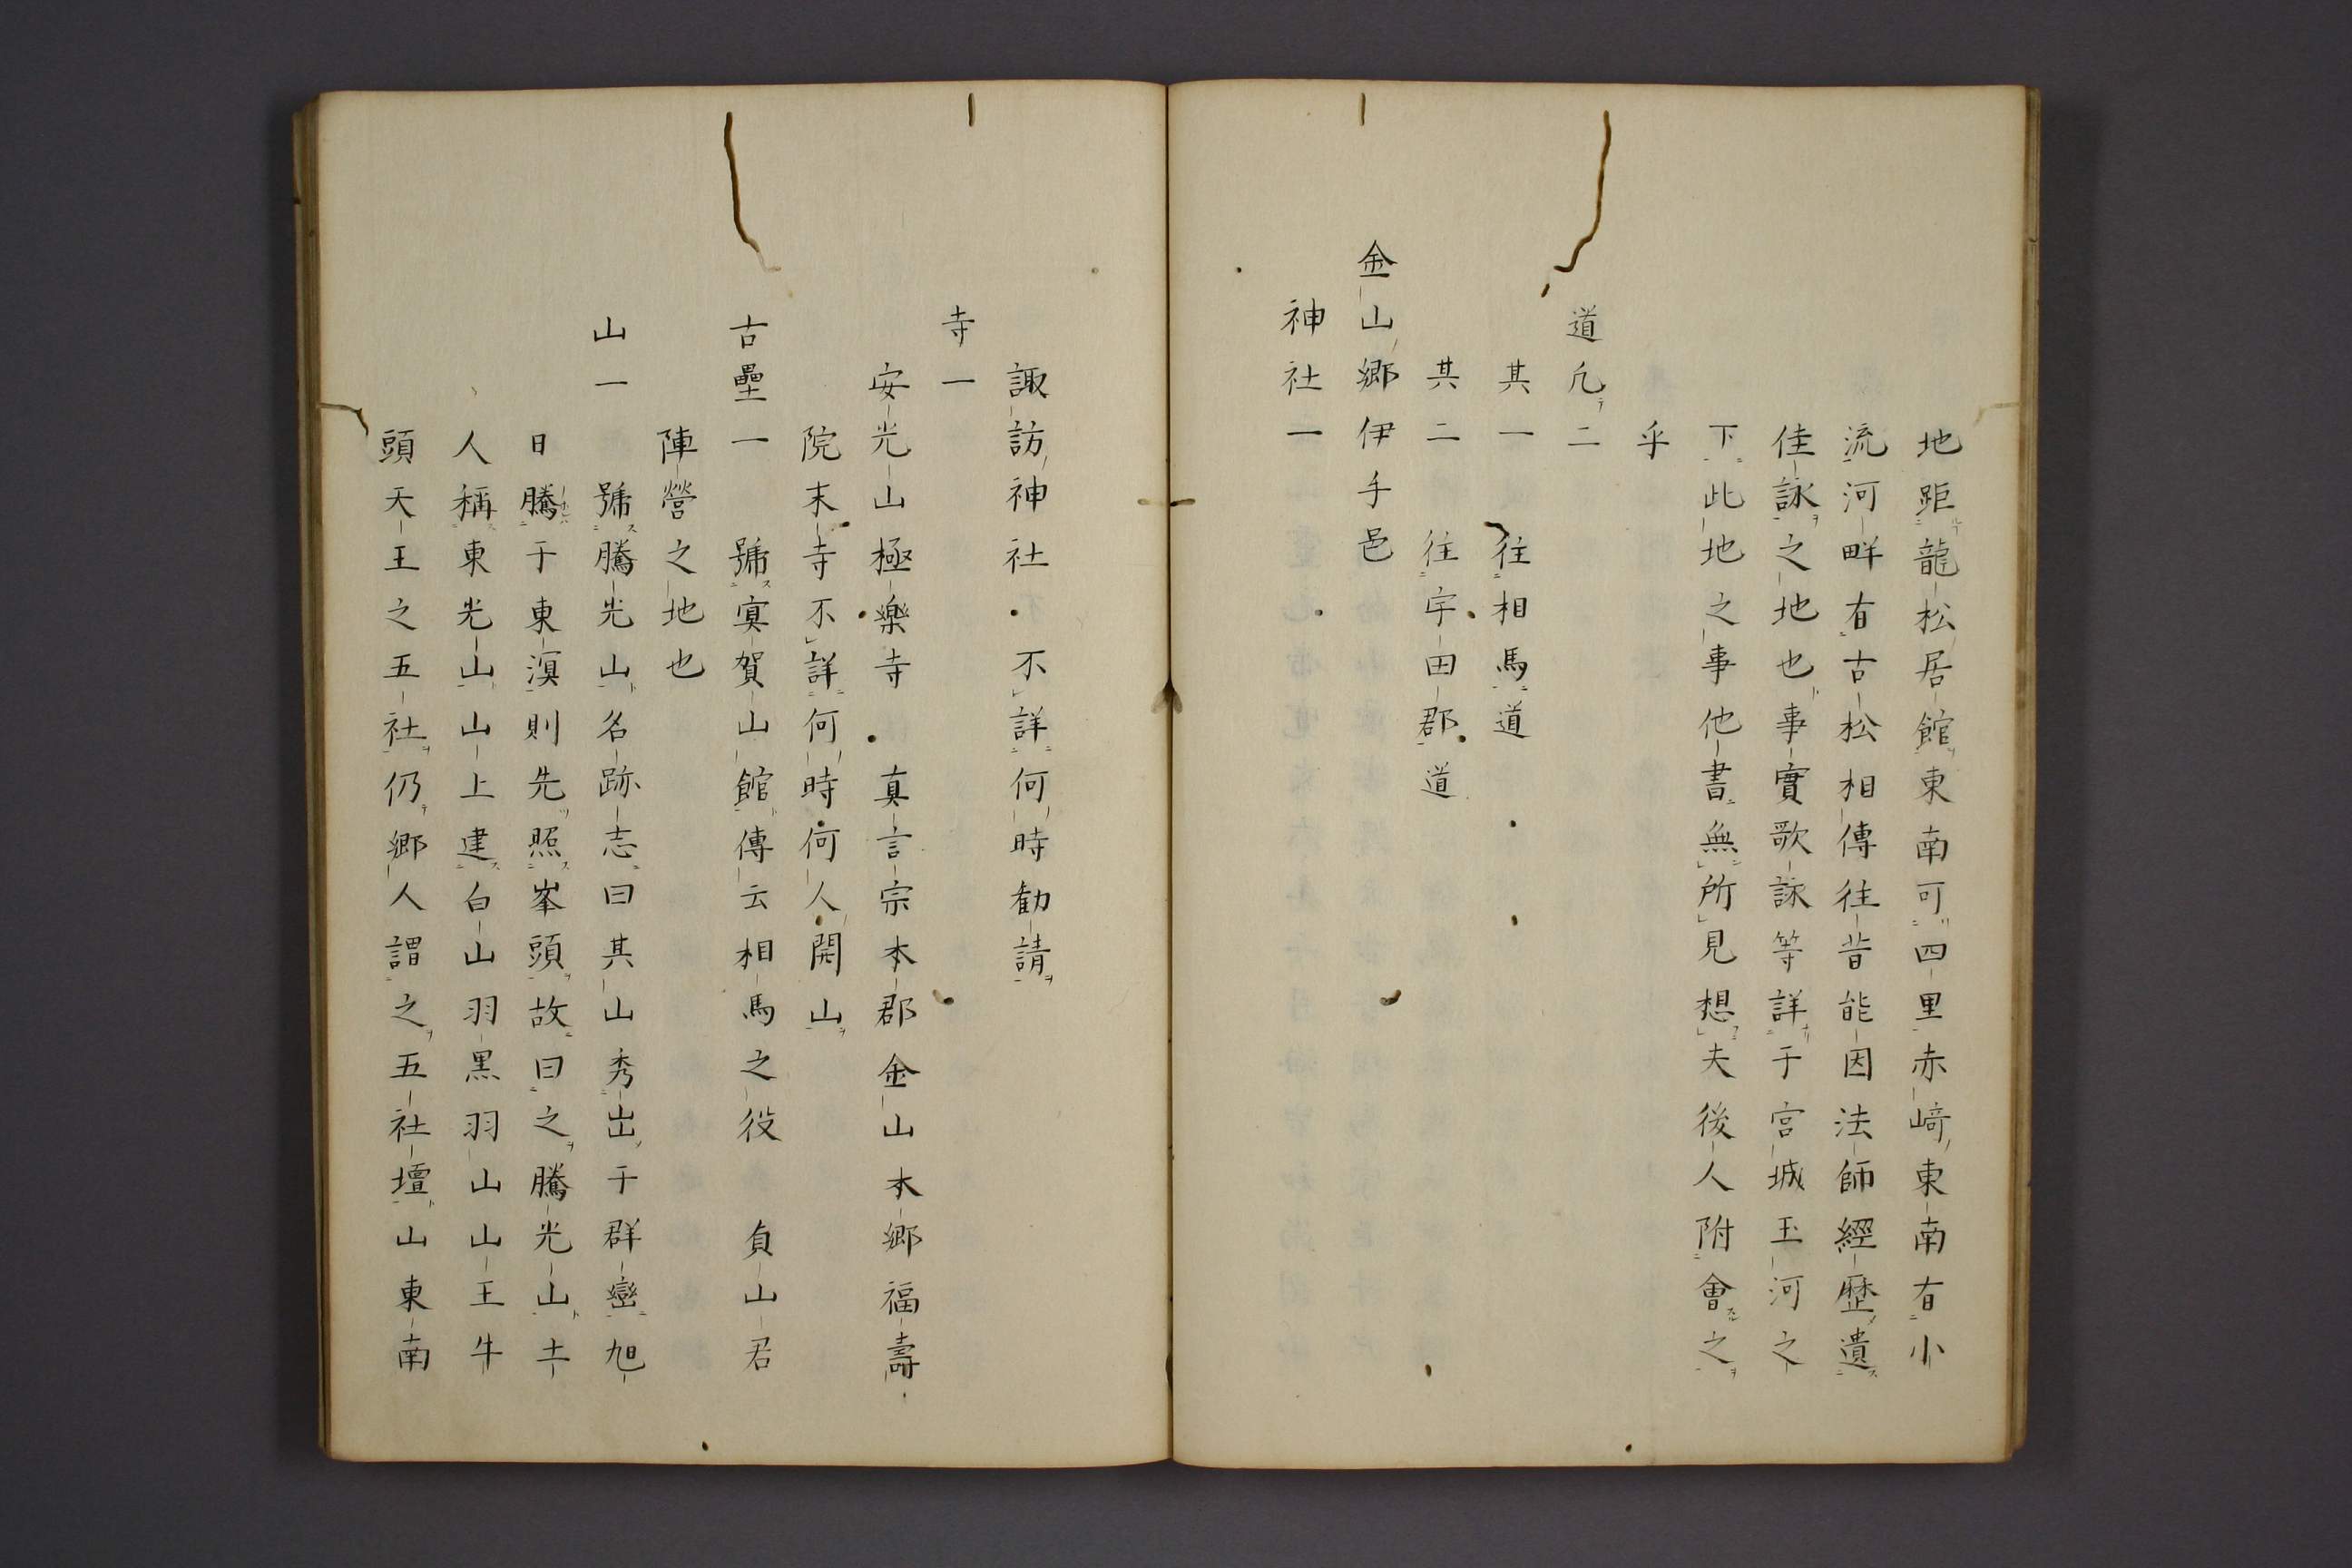 地距龍松居館東南可四里赤﨑東南有小
流河畔有古松相傳往昔能因法師經歷遺
佳詠之地也事實歌詠等詳于宮城玉河之
下此地之事他書無所見想夫後人附會之
乎
道凢二
其一 往相馬道
其二 往宇田郡道
金山郷伊手邑
神社一
諏訪神社 不詳何時勧請
寺一
安光山極樂寺 真言宗本郡金山本郷福壽
院末寺不詳何時何人開山
古壘一 號寞賀山館傳云相馬之役 貞山君
陣營之地也
山一
號騰光山名跡志曰其山秀出于群巒旭
日騰于東溟則先照峯頭故曰之騰光山土
人稱東光山山上建白山羽黒羽山山王牛
頭天王之五社仍郷人謂之五社壇山東南